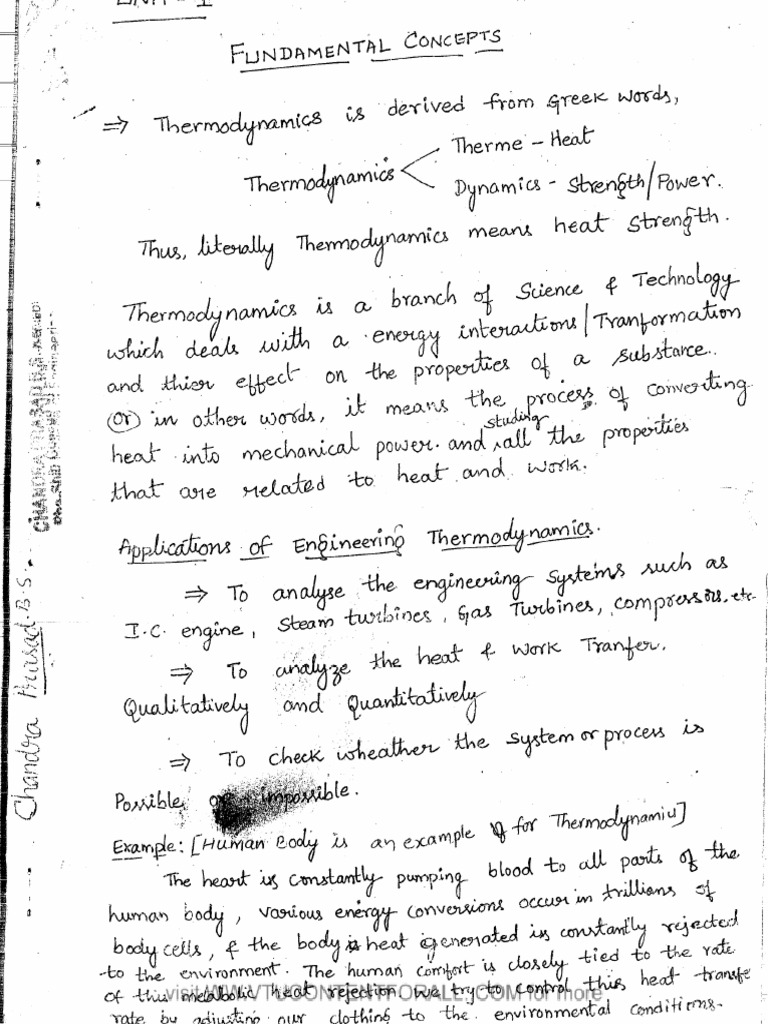 UNIT - I
FUNDAMENTAL CONCEPTS
⇒ Thermodynamics is derived from Greek words,
Therme - Heat
Thermodynamics
Dynamics - Strength/Power.
Thus, literally Thermodynamics means heat strength.
Thermodynamics is a branch of Science & Technology
which deals with a energy interactions/Tranformation
and thier effect on the properties of a substance.
(or) in other words, it means the process of converting
studing
heat into mechanical power. and all the properties
that are related to heat and work.
Applications of Engineering Thermodynamics.
⇒ To analyse the engineering systems such as
I.C. engine, Steam turbines, Gas Turbines, compressors, etc.
⇒ To analyze the heat & work Tranfer.
Qualitatively and Quantitatively
⇒ To check wheather the system or process is
Possible or impossible.
Example: [Human Body is an example for Thermodynamic]
The heart is constantly pumping blood to all parts of the
human body, various energy conversions occur in trillions of
body cells, & the body heat generated is constantly rejected
to the environment. The human comfort is closely tied to the rate
of this metabolic heat rejection. we try to control this heat transfe
visit WWW.VTUCONTENTFORALL.COM for more
rate by adjusting our clothing to the environmental conditions.
Chandra Prasad. B.S.